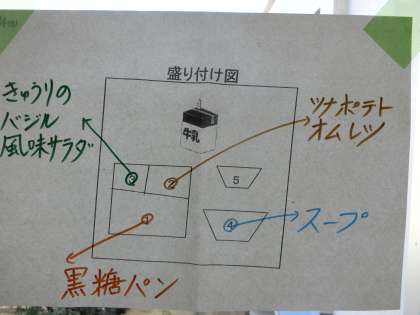 盛り付け図
牛乳
きゅうりの
バジル
風味サラダ
ツナポテト
オムレツ
③
②
5
①
④
スープ
黒糖パン